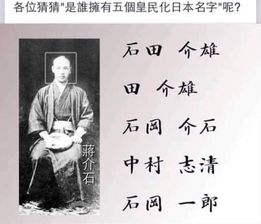 各位猜猜"是誰擁有五個皇民化日本名字"呢?
石田 介雄
田 介雄
石岡 介石
中村 志清
石岡 一郎
蔣介石